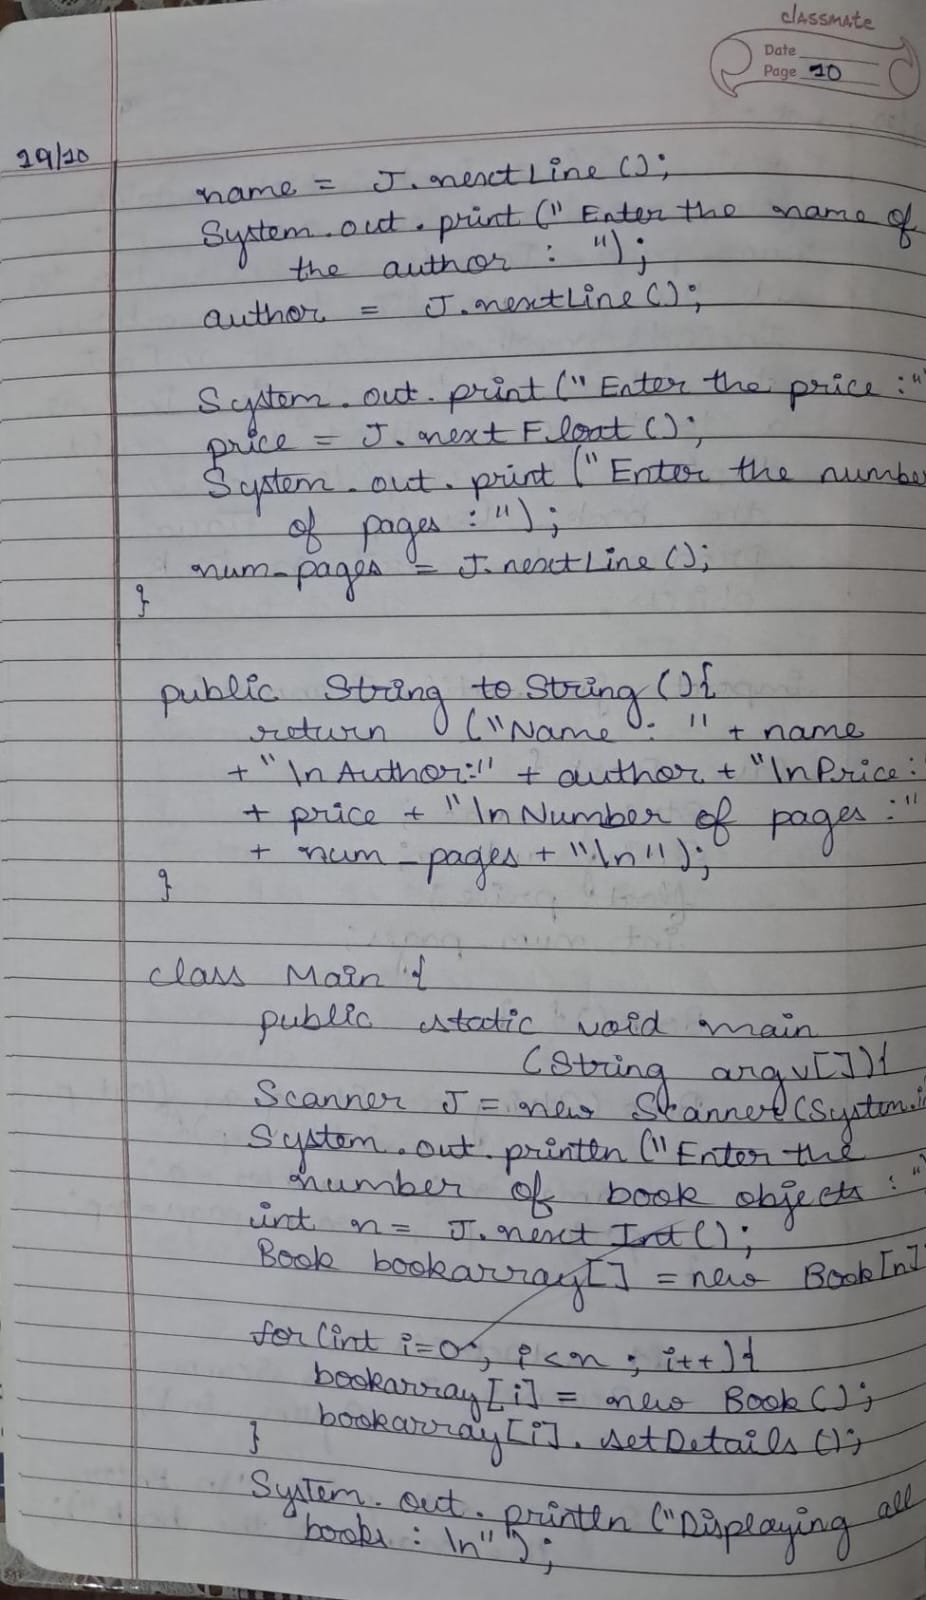 classmate
Date
Page 10
19/10
name = J.nextLine();
System.out.print("Enter the name of
the author : ");
author = J.nextLine();
System.out.print("Enter the price :"
price = J.nextFloat();
System.out.print("Enter the number
of pages : ");
num_pages = J.nextLine();
}
public String toString(){
return ("Name : " + name
+ "\nAuthor:" + author + "\nPrice:
+ price + "\nNumber of pages :"
+ num_pages + "\n");
}
class Main {
public static void main
(String argv[]){
Scanner J = new Scanner(System.i
System.out.println("Enter the
number of book objects : "
int n = J.nextInt();
Book bookarray[] = new Book[n]
for(int i=0; i<n ; i++){
bookarray[i] = new Book();
bookarray[i].setDetails();
}
System.out.println("Displaying all
books : \n");